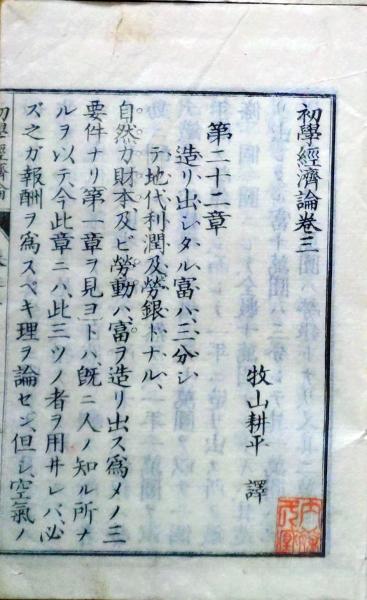 初學經濟論卷三
牧山耕平 譯
第二十二章
造リ出シタル富ハ、三分シ
テ地代利潤及勞銀トナル、
自然ガ財本及ビ勞動ハ、富ヲ造リ出ス爲メノ三
要件ナリ第一章ヲ見ヨトハ、旣ニ人ノ知ル所ナ
ルヲ以テ、今此章ニハ、此三ツノ者ヲ用井レバ、必
ズ之ガ報酬ヲ爲スベキ理ヲ論セン、但シ、空氣ノ
初學經濟論